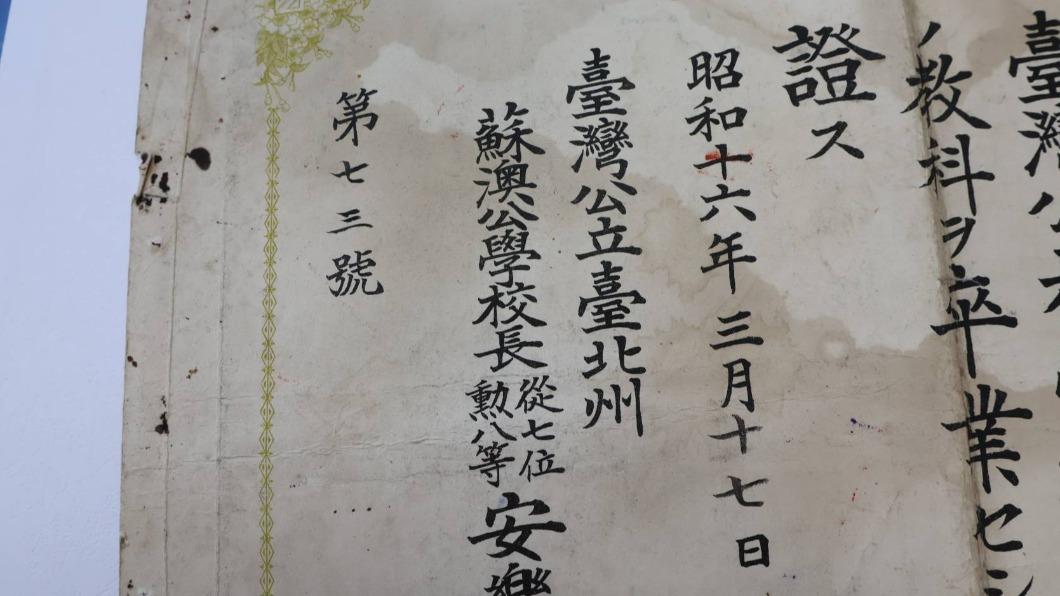 臺灣
ノ教科ヲ卒業セシ
證ス
昭和十六年三月十七日
臺灣公立臺北州
蘇澳公學校長
從七位
勲八等
安樂
第七三號